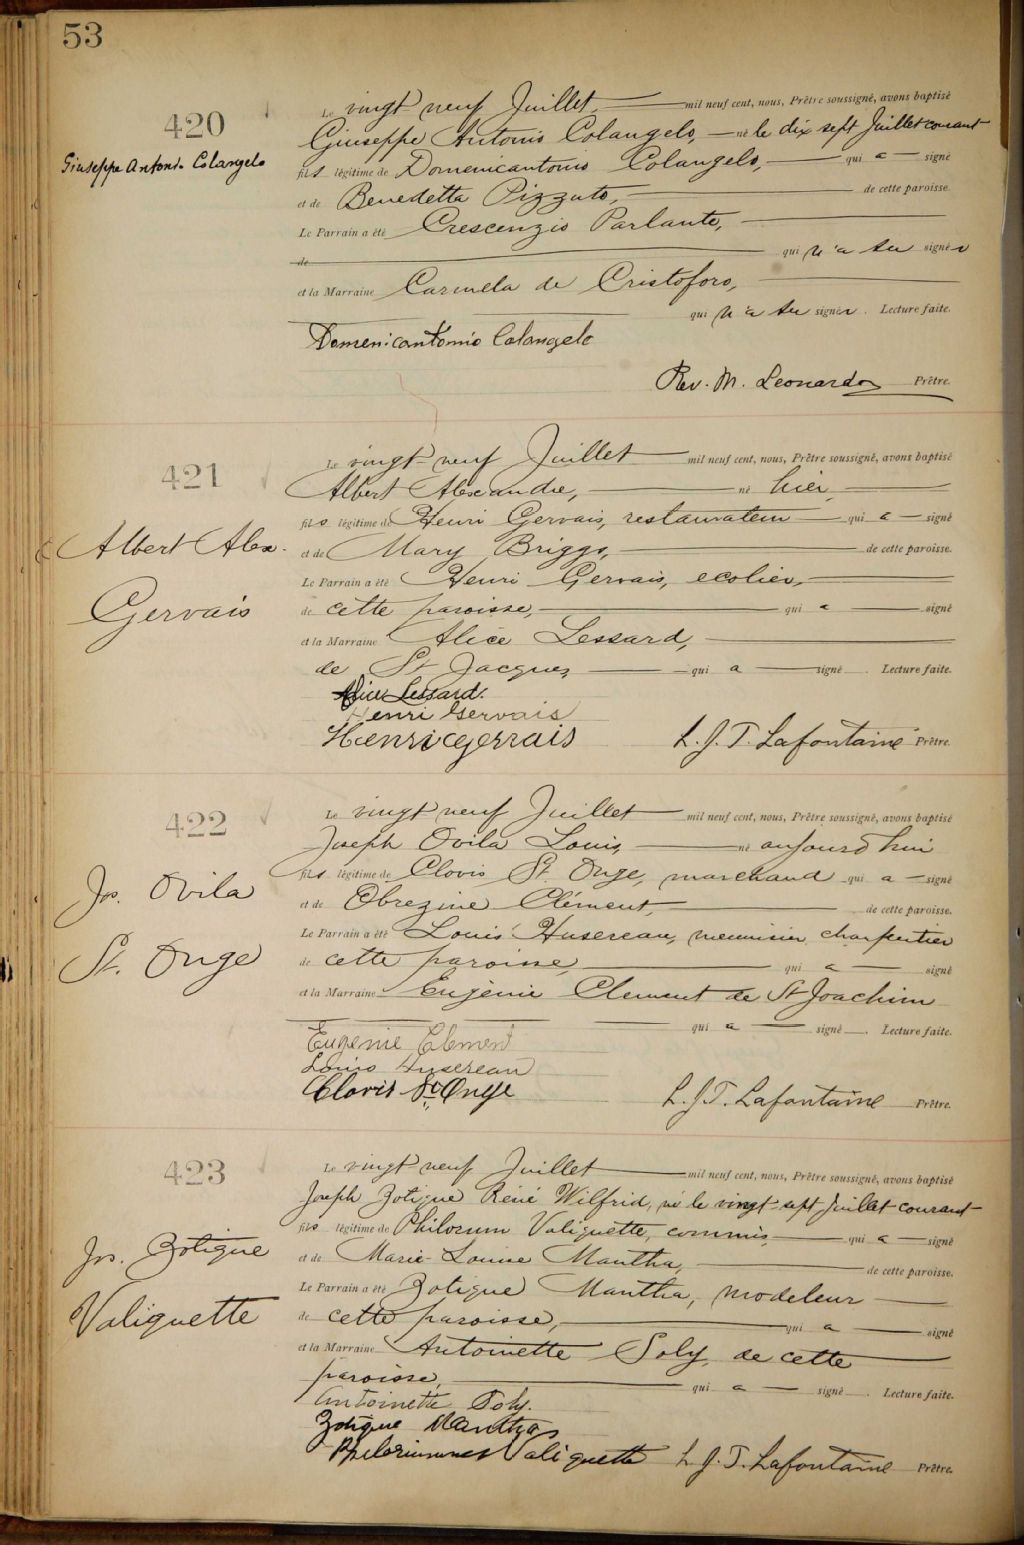 53
420
Giuseppe Antonio Colangelo
Le vingt neuf Juillet mil neuf cent, nous, Prêtre soussigné, avons baptisé
Giuseppe Antonio Colangelo, né le dix sept Juillet courant
fils légitime de Domenicantonio Colangelo, qui a signé
et de Benedetta Pizzuto, de cette paroisse.
Le Parrain a été Crescenzio Parlante,
de qui n'a su signer
et la Marraine Carmela de Cristoforo,
qui n'a su signer. Lecture faite.
Domenicantonio Colangelo
Rev. M. Leonardo Prêtre.
421
Albert Alex.
Gervais
Le vingt neuf Juillet mil neuf cent, nous, Prêtre soussigné, avons baptisé
Albert Alexandre, né hier,
fils légitime de Henri Gervais, restaurateur qui a signé
et de Mary Briggs, de cette paroisse.
Le Parrain a été Henri Gervais, ecolier,
de cette paroisse, qui a signé
et la Marraine Alice Lessard,
de St Jacques qui a signé. Lecture faite.
Alice Lessard.
Henri Gervais
Henri Gervais
L. J. T. Lafontaine Prêtre.
422
Jos. Ovila
St. Onge
Le vingt neuf Juillet mil neuf cent, nous, Prêtre soussigné, avons baptisé
Joseph Ovila Louis, né aujourd'hui
fils légitime de Clovis St. Onge, marchand qui a signé
et de Obrezine Clément, de cette paroisse.
Le Parrain a été Louis Husereau, menuisier charpentier
de cette paroisse, qui a signé
et la Marraine Eugénie Clement de St Joachim
qui a signé. Lecture faite.
Eugenie Clement
Louis Husereau
Clovis St Onge
L. J. T. Lafontaine Prêtre.
423
Jos. Zotique
Valiquette
Le vingt neuf Juillet mil neuf cent, nous, Prêtre soussigné, avons baptisé
Joseph Zotique Réné Wilfrid, né le vingt-sept Juillet courant
fils légitime de Philorum Valiquette, commis, qui a signé
et de Marie-Louise Mantha, de cette paroisse.
Le Parrain a été Zotique Mantha, modeleur
de cette paroisse, qui a signé
et la Marraine Antoinette Soly, de cette
paroisse, qui a signé. Lecture faite.
Antoinette Soly.
Zotique Mantha
Valiquette L. J. T. Lafontaine Prêtre.